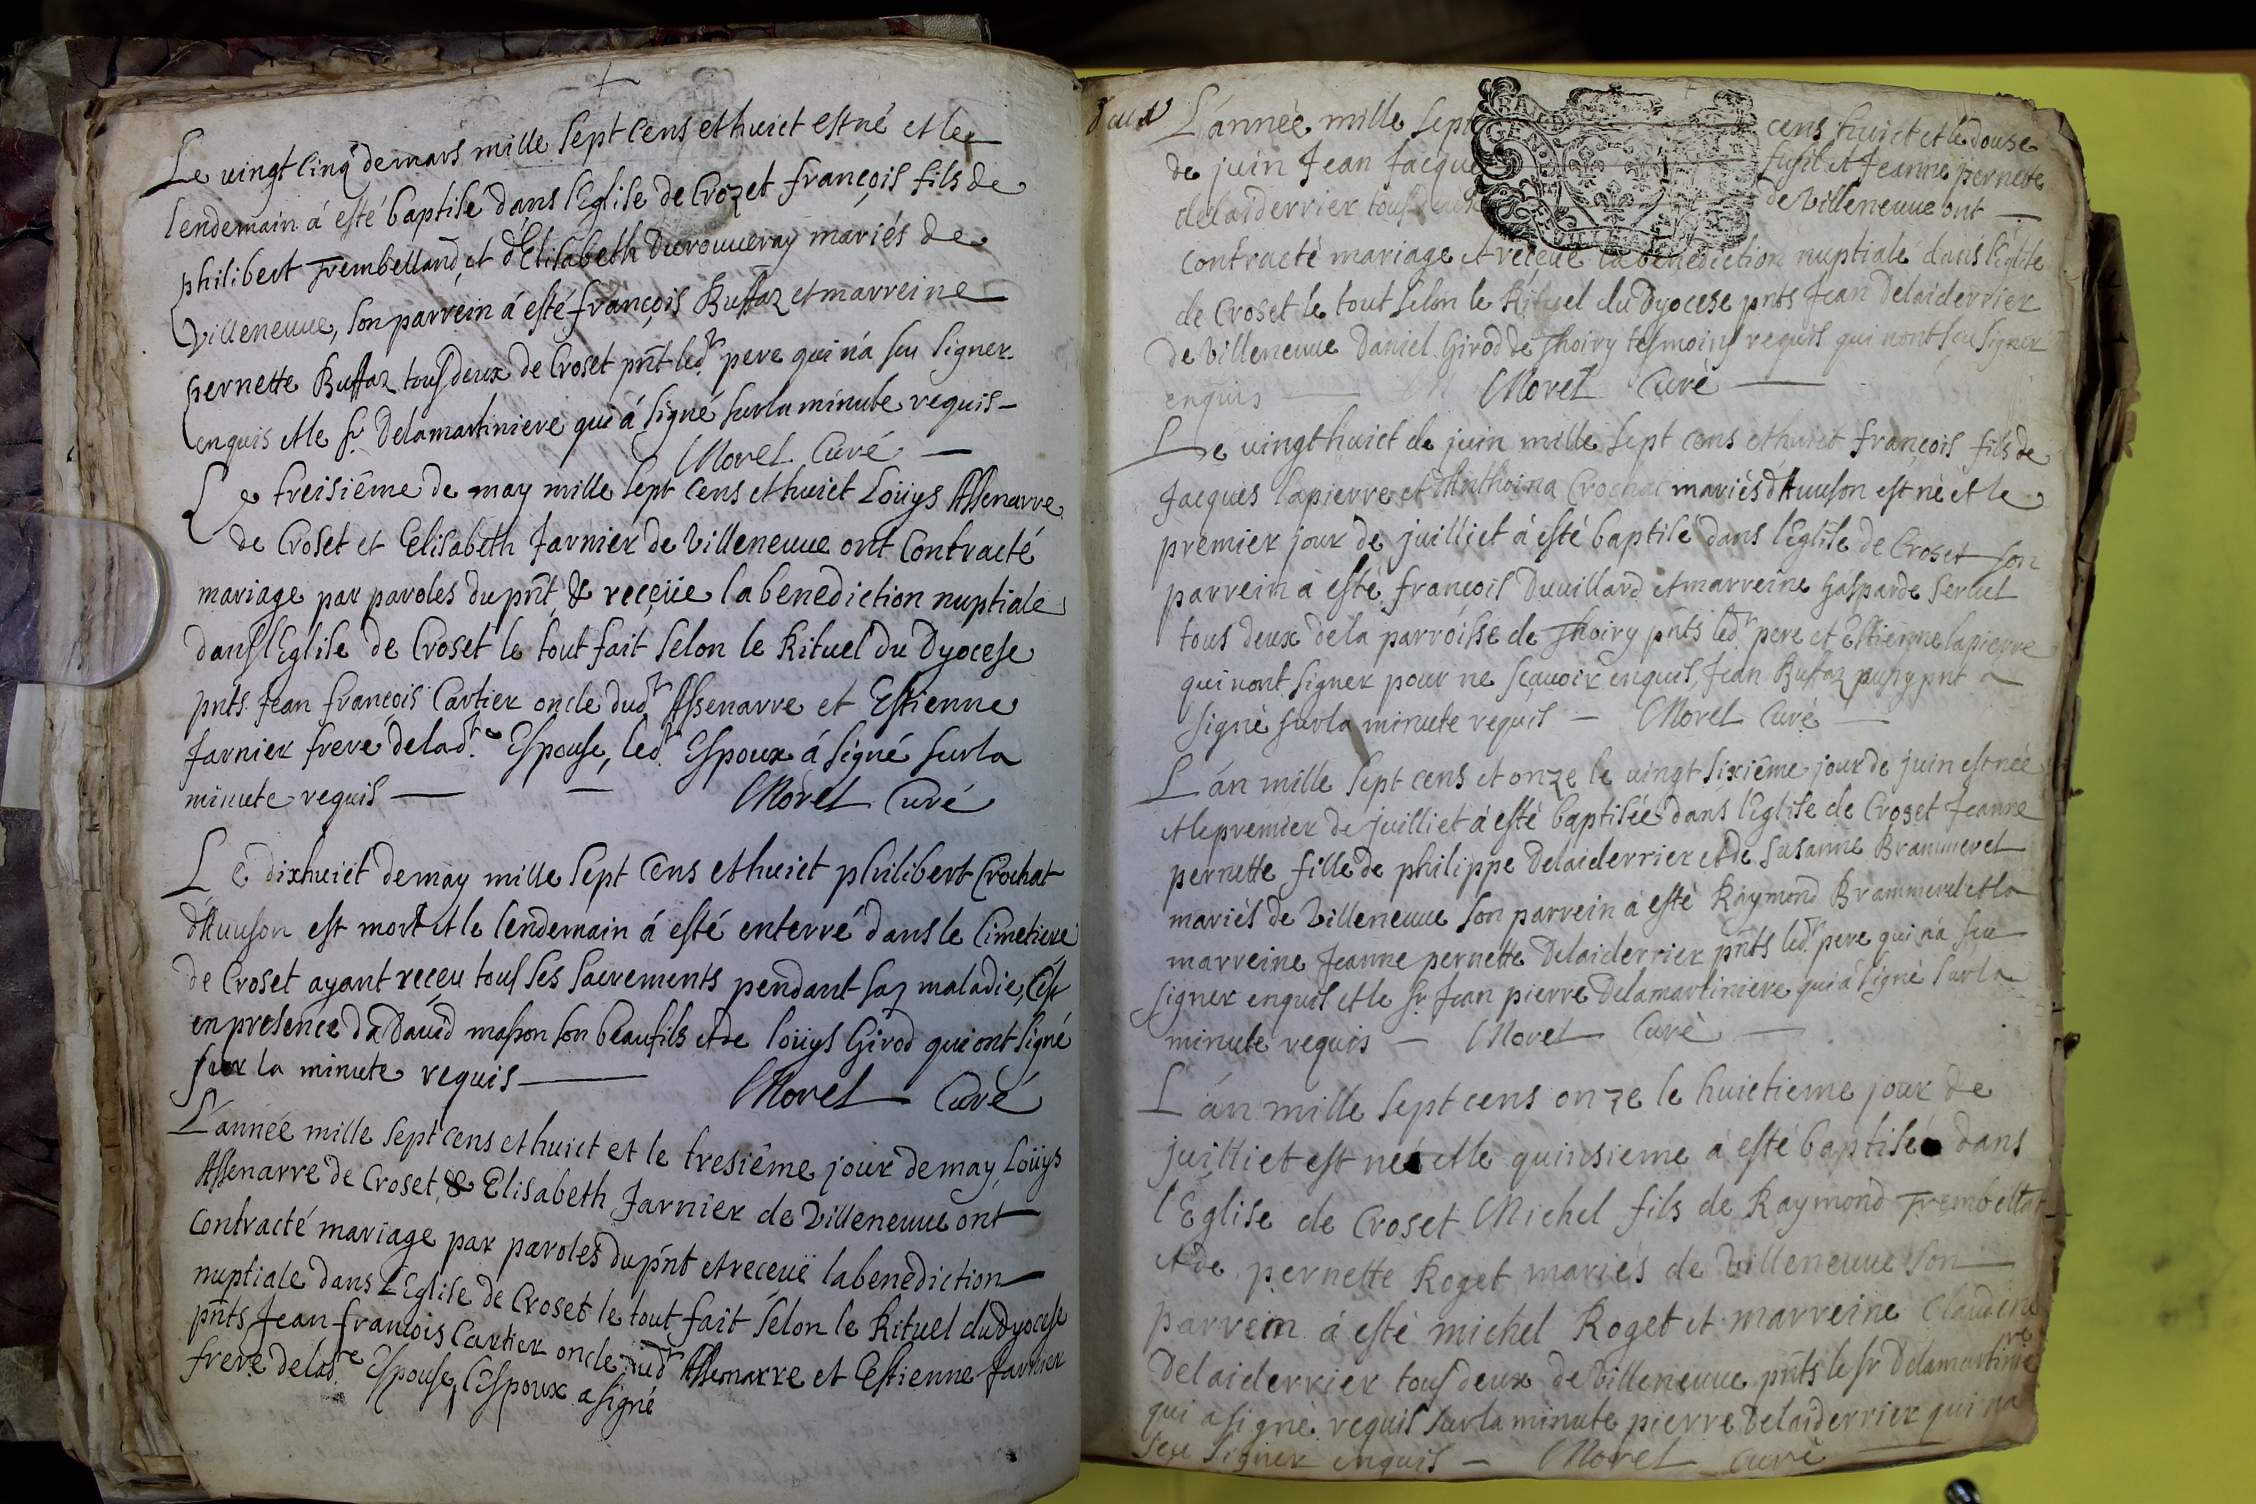 Le vingt cinq de mars mille sept cens et huict est né et le
lendemain á esté baptisé dans l'Eglise de Crozet françois fils de
philibert Trembelland et d'Elisabeth Durouueray mariés de
Villeneuue, son parrein á esté françois Buffaz et marreine
pernette Buffaz tous deux de Croset pñt led.t pere qui n'a sçu signer
enquis et le Sr. Delamartiniere qui á signé sur la minute requis —
Morel Curé —
Le treisiême de may mille sept cens et huict Loüys Assenarre
de Croset et Elisabeth Jarnier de Villeneuue ont Contracté
mariage par paroles du pñt & reçeüe la benediction nuptiale
dans l'Eglise de Croset le tout fait selon le Rituel du Dyocese
pnts Jean françois Cartier oncle dud.t Assenarre et Estienne
Jarnier frere de lad.te Espouse, led.t Espoux á signé sur la
minute requis — — Morel Curé
Le dixhuict de may mille sept cens et huict philibert Crochat
d'Auuson est mort et le lendemain á esté enterré dans le Cimetiere
de Croset ayant receu tous ses sacrements pendant sa maladie, C'est
en presence da Dauid masson son beaufils et de loüys Girod qui ont signé
sur la minute requis — Morel Curé
L'année mille sept cens et huict et le tresiême jour de may, Loüys
Assenarre de Croset, & Elisabeth Jarnier de Villeneuue ont
Contracté mariage par paroles du pñt et receuë la benediction
nuptiale dans l'Eglise de Croset le tout fait selon le Rituel du Dyocese
pñts Jean françois Cartier oncle dud.t Assenarre et Estienne Jarnier
frere de lad.te Espouse, l'Espoux a signé
L'année mille sept cens huict et le douse
de juin Jean Jacque fusil et Jeanne pernette
delaiderrier tous deux de Villeneuue ont —
Contracté mariage et reçeue la benediction nuptiale dans l'Eglise
de Croset le tout selon le Rituel du Dyocese pnts Jean Delaiderrier
de Villeneuue Daniel Girod de Thoiry tesmoins requis qui n'ont sçu signer
enquis — Morel Curé —
Le vingt huict de juin mille sept cens et huict françois fils de
Jacques lapierre et Anthoina Crochat mariés d'Auuson est né et le
premier jour de juilliet á esté baptisé dans l'Eglise de Croset son
parrein á esté françois Duuillard et marreine Gasparde
tous deux de la parroisse de Thoiry pñts led.t pere et Estienne lapierre
qui n'ont signer pour ne sçauoir enquis, Jean Buffaz pnt a
signé sur la minute requis — Morel Curé —
L'án mille sept cens et onze le vingt sixiême jour de juin est née
et le premier de juilliet á esté baptisée dans l'Eglise de Croset Jeanne
pernette fille de philippe Delaiderrier et de Susanne Brammerel
mariés de Villeneuue son parrein á esté Raymond Brammerel et la
marreine Jeanne pernette Delaiderrier pñts led.t pere qui n'á sçu
signer enquis et le Sr. Jean pierre Delamartiniere qui á signé sur la
minute requis — Morel Curé —
L'án mille sept cens onze le huictieme jour de
juilliet est né et le quinsieme á esté baptisé dans
l'Eglise de Croset Michel fils de Raymond Trembellat
et de pernette Roget mariés de Villeneuue son —
parrein á esté michel Roget et marreine Claudine
Delaiderrier tous deux de Villeneuue pñts le sr Delamartiniere
qui a signé requis sur la minute pierre Delaiderrier qui n'a
sçu signer enquis — Morel Curé